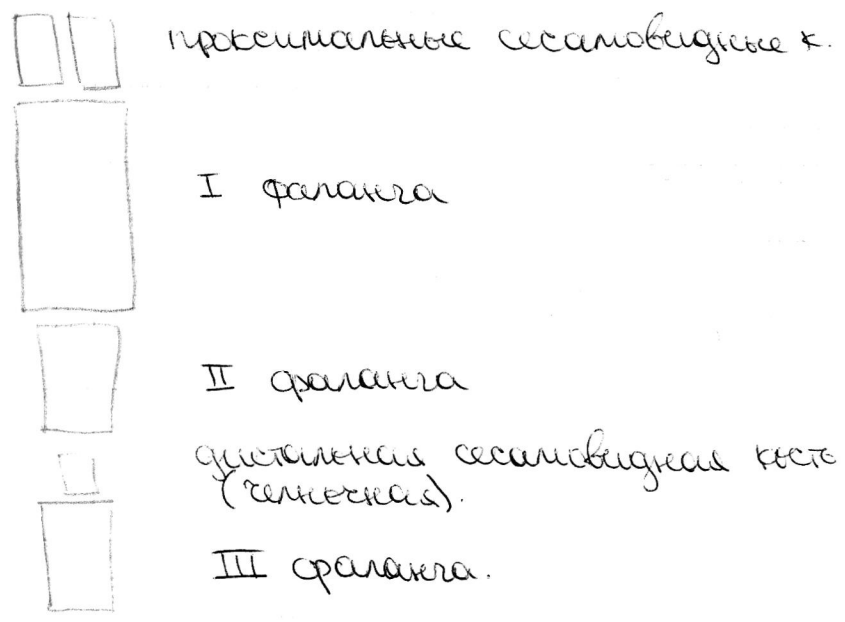 проксимальные сесамовидные к.
I фаланга
II фаланга
дистальная сесамовидная кость
(челночная).
III фаланга.